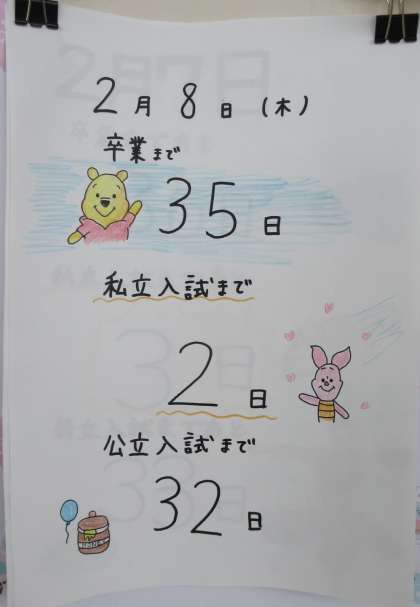 2月8日(木)
卒業まで
35日
私立入試まで
2日
公立入試まで
32日
HONEY